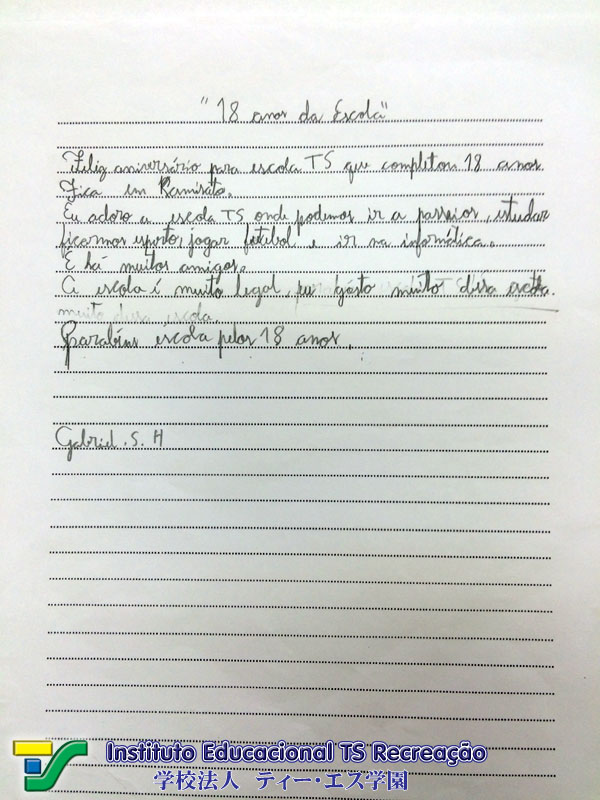 "18 anos da Escola"
Feliz aniversário para escola TS que completou 18 anos.
Fica em Kamisato.
Eu adoro a escola TS onde podemos ir a passeios, estudar
ficarmos esperto, jogar futebol e ir na informática.
E há muitos amigos.
A escola é muito legal, eu gosto muito dessa escola.
muito dessa escola
Parabéns escola pelos 18 anos.
Gabriel . S. H
Instituto Educacional TS Recreação
学校法人 ティー・エズ学園